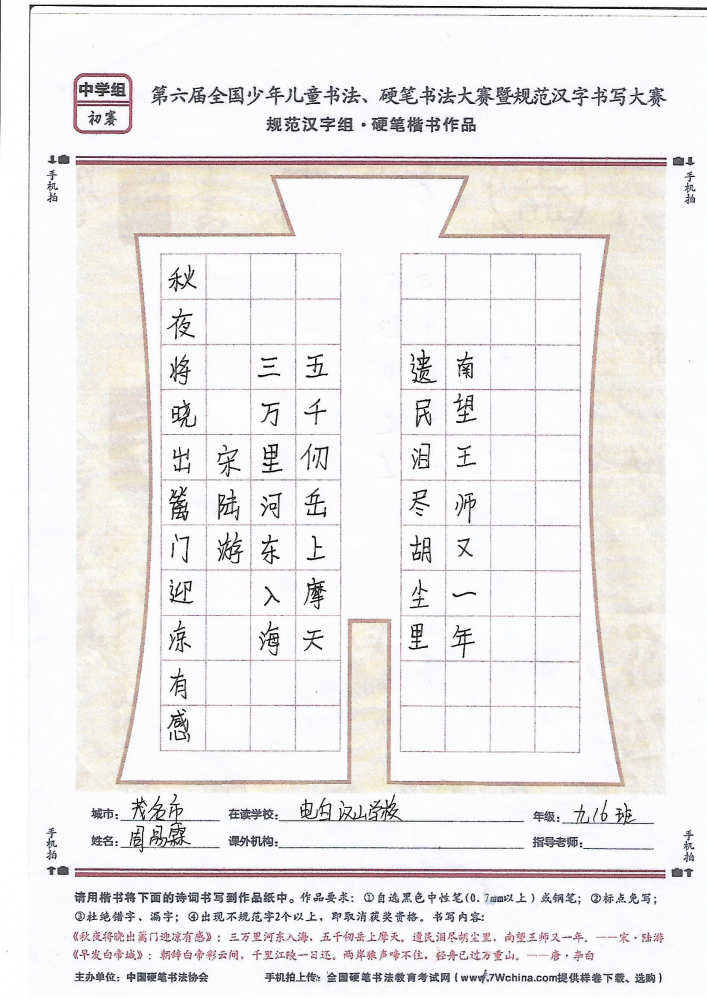 中学组
初赛
第六届全国少年儿童书法、硬笔书法大赛暨规范汉字书写大赛
规范汉字组·硬笔楷书作品
手机拍
手机拍
秋夜将晓出篱门迎凉有感
宋陆游
三万里河东入海
五千仞岳上摩天
遗民泪尽胡尘里
南望王师又一年
城市：茂名市 在读学校： 电白汉山学校 年级：九16班
姓名：周易霖 课外机构： 指导老师：
手机拍
手机拍
请用楷书将下面的诗词书写到作品纸中。作品要求：①自选黑色中性笔(0.7mm以上）或钢笔；②标点免写；
③杜绝错字、漏字；④出现不规范字2个以上，即取消获奖资格。书写内容：
《秋夜将晓出篱门迎凉有感》：三万里河东入海，五千仞岳上摩天。遗民泪尽胡尘里，南望王师又一年。——宋·陆游
《早发白帝城》：朝辞白帝彩云间，千里江陵一日还。两岸猿声啼不住，轻舟已过万重山。——唐·李白
主办单位：中国硬笔书法协会 手机拍上传：全国硬笔书法教育考试网（www.7Wchina.com提供样卷下载、选购）